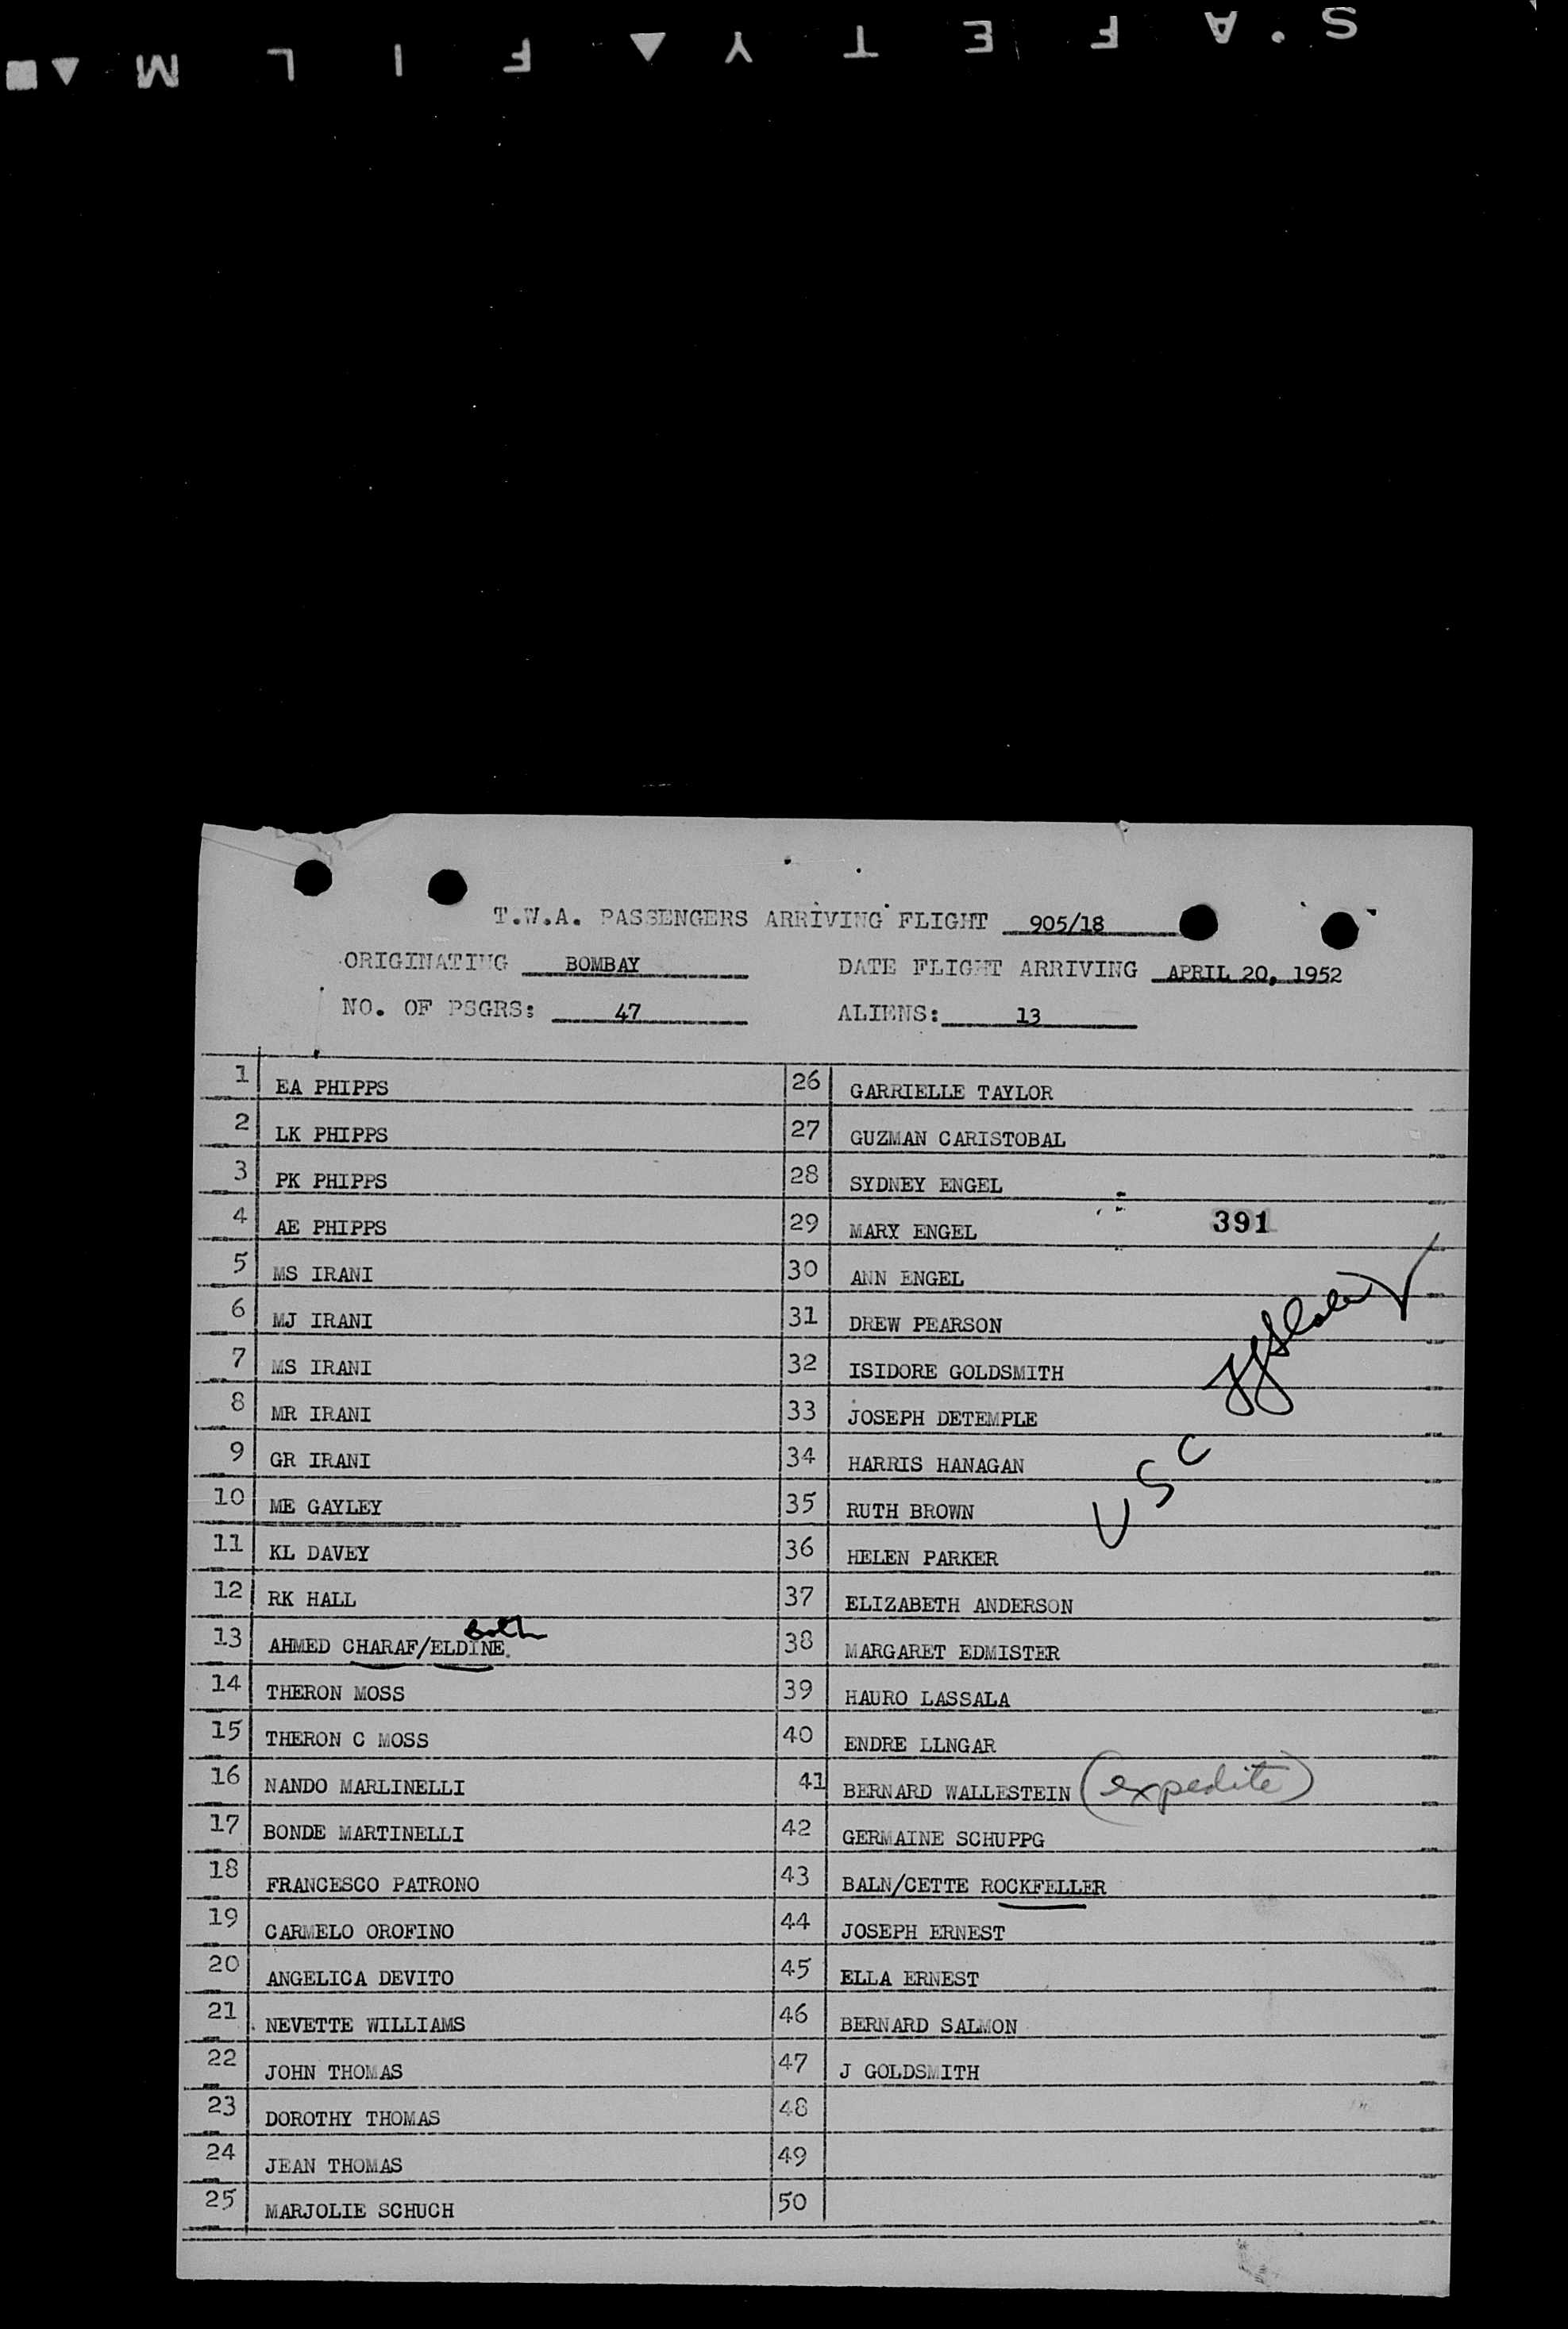 S.AFETY▲FILM▲■
T.W.A. PASSENGERS ARRIVING FLIGHT 905/18
ORIGINATING BOMBAY DATE FLIGHT ARRIVING APRIL 20, 1952
NO. OF PSGRS: 47 ALIENS: 13
1 EA PHIPPS
2 LK PHIPPS
3 PK PHIPPS
4 AE PHIPPS
5 MS IRANI
6 MJ IRANI
7 MS IRANI
8 MR IRANI
9 GR IRANI
10 ME GAYLEY
11 KL DAVEY
12 RK HALL
Both
13 AHMED CHARAF/ELDINE.
14 THERON MOSS
15 THERON C MOSS
16 NANDO MARLINELLI
17 BONDE MARTINELLI
18 FRANCESCO PATRONO
19 CARMELO OROFINO
20 ANGELICA DEVITO
21 NEVETTE WILLIAMS
22 JOHN THOMAS
23 DOROTHY THOMAS
24 JEAN THOMAS
25 MARJOLIE SCHUCH
26 GARRIELLE TAYLOR
27 GUZMAN CARISTOBAL
28 SYDNEY ENGEL
29 MARY ENGEL 391
30 ANN ENGEL
31 DREW PEARSON
32 ISIDORE GOLDSMITH
33 JOSEPH DETEMPLE
34 HARRIS HANAGAN
USC
35 RUTH BROWN
36 HELEN PARKER
37 ELIZABETH ANDERSON
38 MARGARET EDMISTER
39 HAURO LASSALA
40 ENDRE LLNGAR
41 BERNARD WALLESTEIN (expedite)
42 GERMAINE SCHUPPG
43 BALN/CETTE ROCKFELLER
44 JOSEPH ERNEST
45 ELLA ERNEST
46 BERNARD SALMON
47 J GOLDSMITH
48
49
50